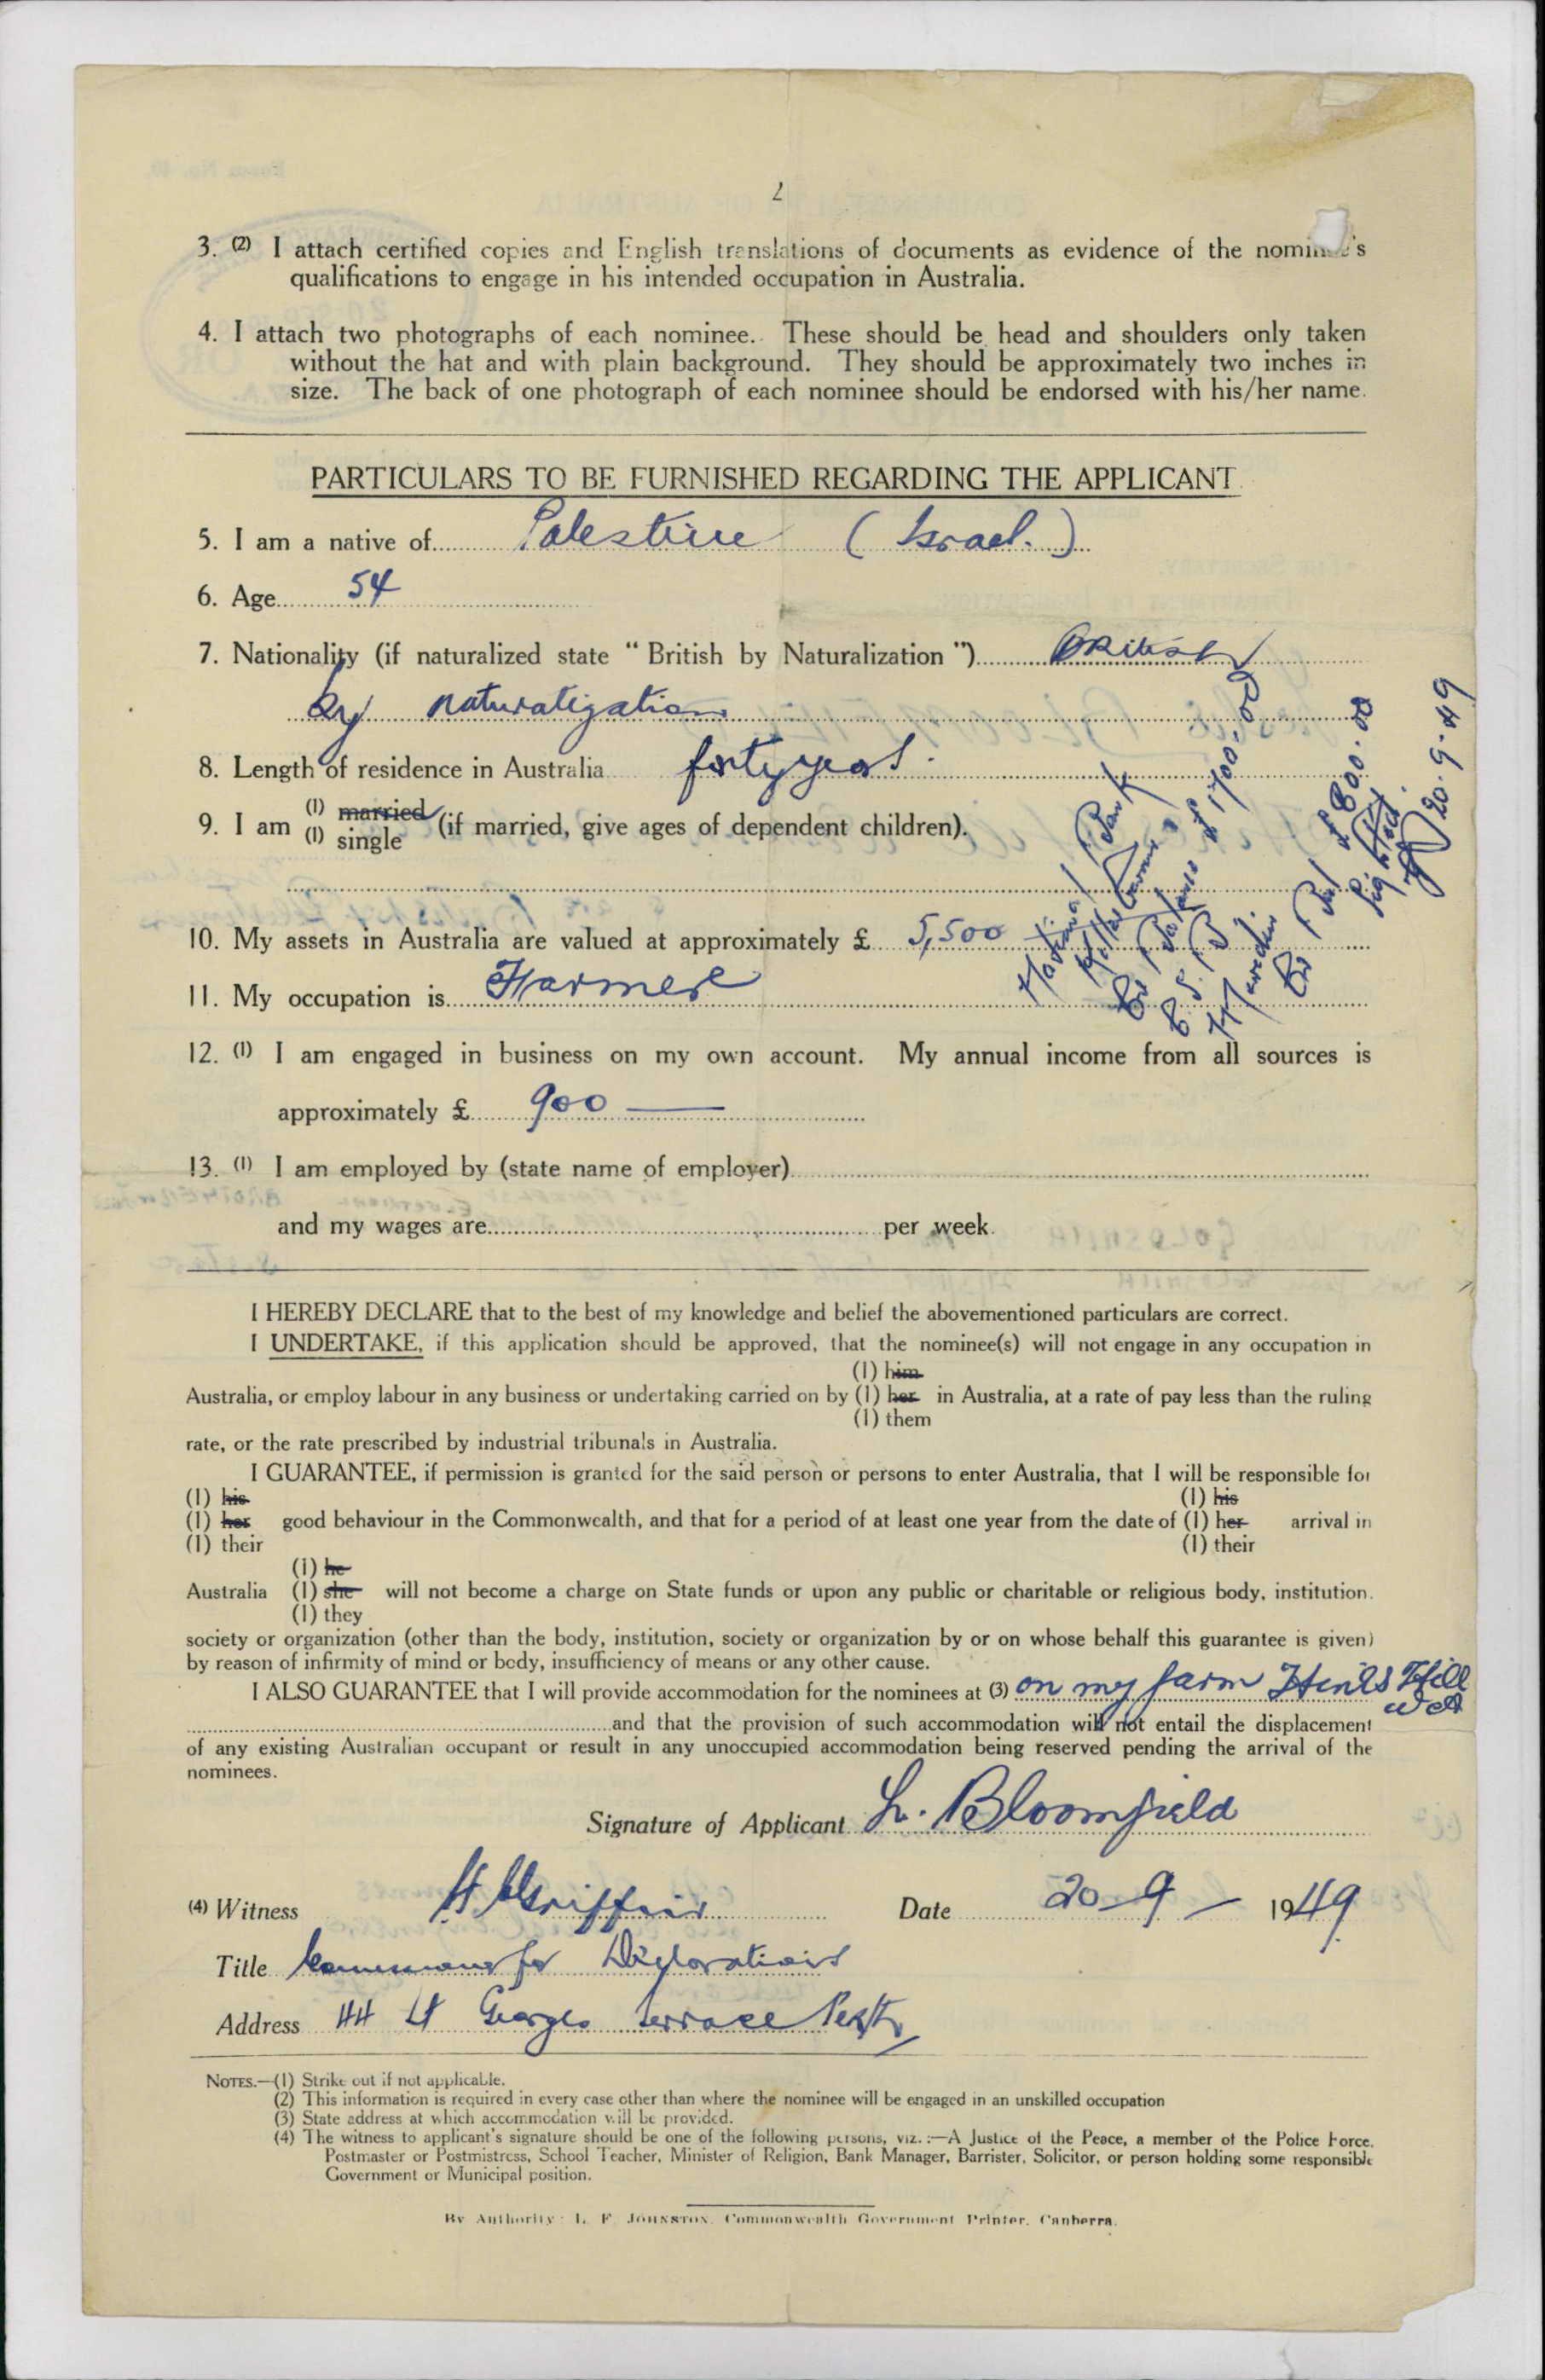 2
3. (2) I attach certified copies and English translations of documents as evidence of the nominee's
qualifications to engage in his intended occupation in Australia.
4. I attach two photographs of each nominee. These should be head and shoulders only taken
without the hat and with plain background. They should be approximately two inches in
size. The back of one photograph of each nominee should be endorsed with his/her name.
PARTICULARS TO BE FURNISHED REGARDING THE APPLICANT
5. I am a native of Palestine (Israel.)
6. Age 54
7. Nationality (if naturalized state "British by Naturalization") British
by naturalization
8. Length of residence in Australia forty years.
9. I am (1) married
(1) single (if married, give ages of dependent children).
National Bank
£1700.
£800.
20.9.49
10. My assets in Australia are valued at approximately £ 5,500
11. My occupation is Farmer
12. (1) I am engaged in business on my own account. My annual income from all sources is
approximately £ 900 —
13. (1) I am employed by (state name of employer)
and my wages are per week.
I HEREBY DECLARE that to the best of my knowledge and belief the abovementioned particulars are correct.
I UNDERTAKE, if this application should be approved, that the nominee(s) will not engage in any occupation in
(1) him
Australia, or employ labour in any business or undertaking carried on by (1) her in Australia, at a rate of pay less than the ruling
(1) them
rate, or the rate prescribed by industrial tribunals in Australia.
I GUARANTEE, if permission is granted for the said person or persons to enter Australia, that I will be responsible for
(1) his (1) his
(1) her good behaviour in the Commonwealth, and that for a period of at least one year from the date of (1) her arrival in
(1) their (1) their
(1) he
Australia (1) she will not become a charge on State funds or upon any public or charitable or religious body, institution.
(1) they
society or organization (other than the body, institution, society or organization by or on whose behalf this guarantee is given)
by reason of infirmity of mind or body, insufficiency of means or any other cause.
I ALSO GUARANTEE that I will provide accommodation for the nominees at (3) on my farm Hines Hill
WA
and that the provision of such accommodation will not entail the displacement
of any existing Australian occupant or result in any unoccupied accommodation being reserved pending the arrival of the
nominees.
Signature of Applicant L. Bloomfield
(4) Witness Griffin Date 20-9-1949
Title Commissioner for Declarations
Address 44 St Georges Terrace Perth
NOTES.—(1) Strike out if not applicable.
(2) This information is required in every case other than where the nominee will be engaged in an unskilled occupation
(3) State address at which accommodation will be provided.
(4) The witness to applicant's signature should be one of the following persons, viz.:—A Justice of the Peace, a member of the Police Force,
Postmaster or Postmistress, School Teacher, Minister of Religion, Bank Manager, Barrister, Solicitor, or person holding some responsible
Government or Municipal position.
By Authority: L. F. JOHNSTON, Commonwealth Government Printer, Canberra.